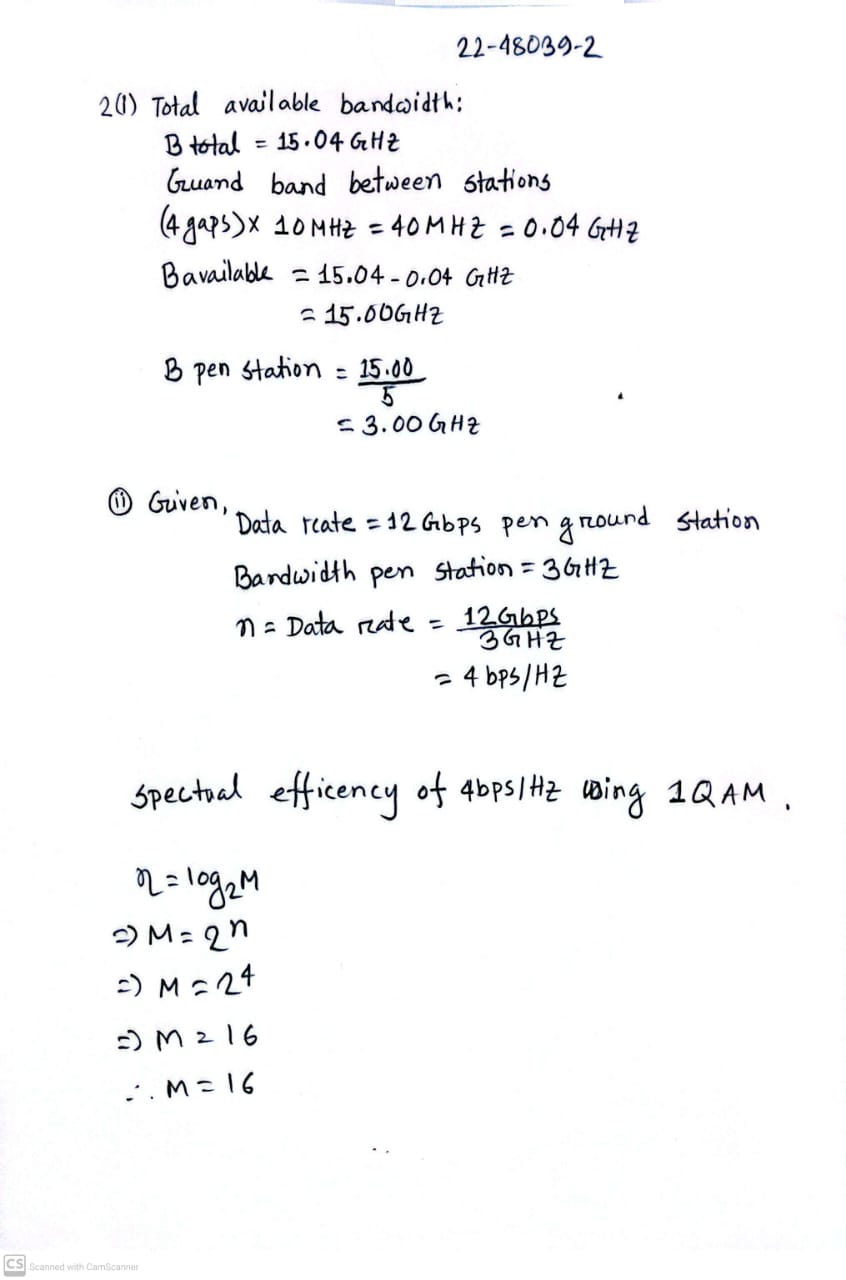 22-48039-2
2(1) Total available bandwidth:
B total = 15.04 GHz
Guand band between stations
(4 gaps)x 10 MHz = 40 MHz = 0.04 GHz
Bavailable = 15.04 - 0.04 GHz
= 15.00GHz
B pen station = 15.00
5
= 3.00 GHz
ii Given,
Data rate = 12 Gbps pen ground station
Bandwidth pen station = 3GHz
n = Data rate = 12Gbps
3GHz
= 4 bps/Hz
spectual efficency of 4bps/Hz using 1QAM.
η = log₂M
=> M = 2ⁿ
=> M = 2⁴
=> M = 16
∴ M = 16
CS Scanned with CamScanner